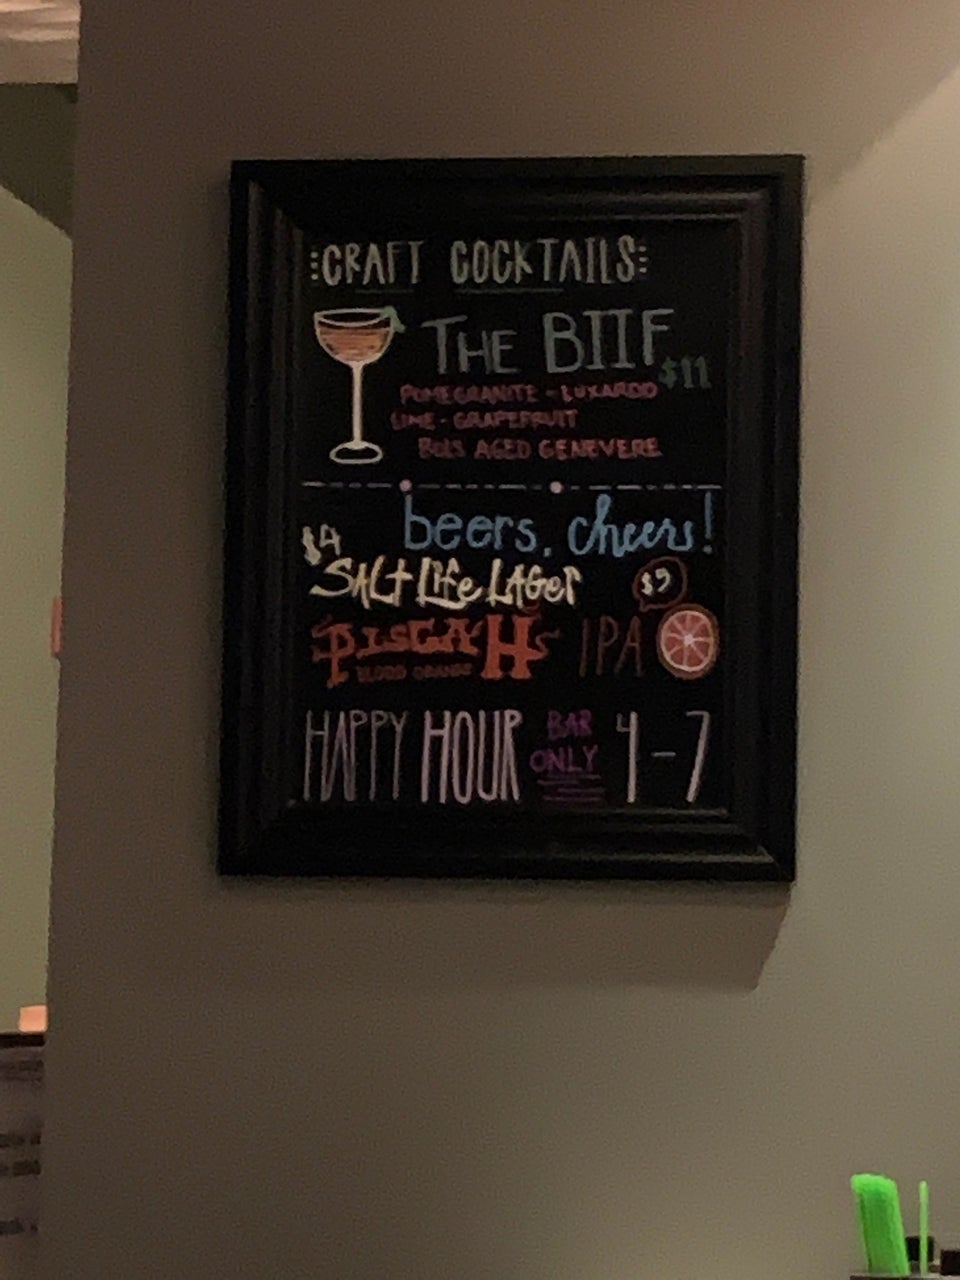 CRAFT COCKTAILS
THE BIIF
$11
POMEGRANITE - LUXARDO
LIME - GRAPEFRUIT
BOLS AGED GENEVERE
beers, cheers!
$4
SALt LiFe LAGer
$5
PISGAH
BLOOD ORANGE
IPA
HAPPY HOUR BAR ONLY 4-7